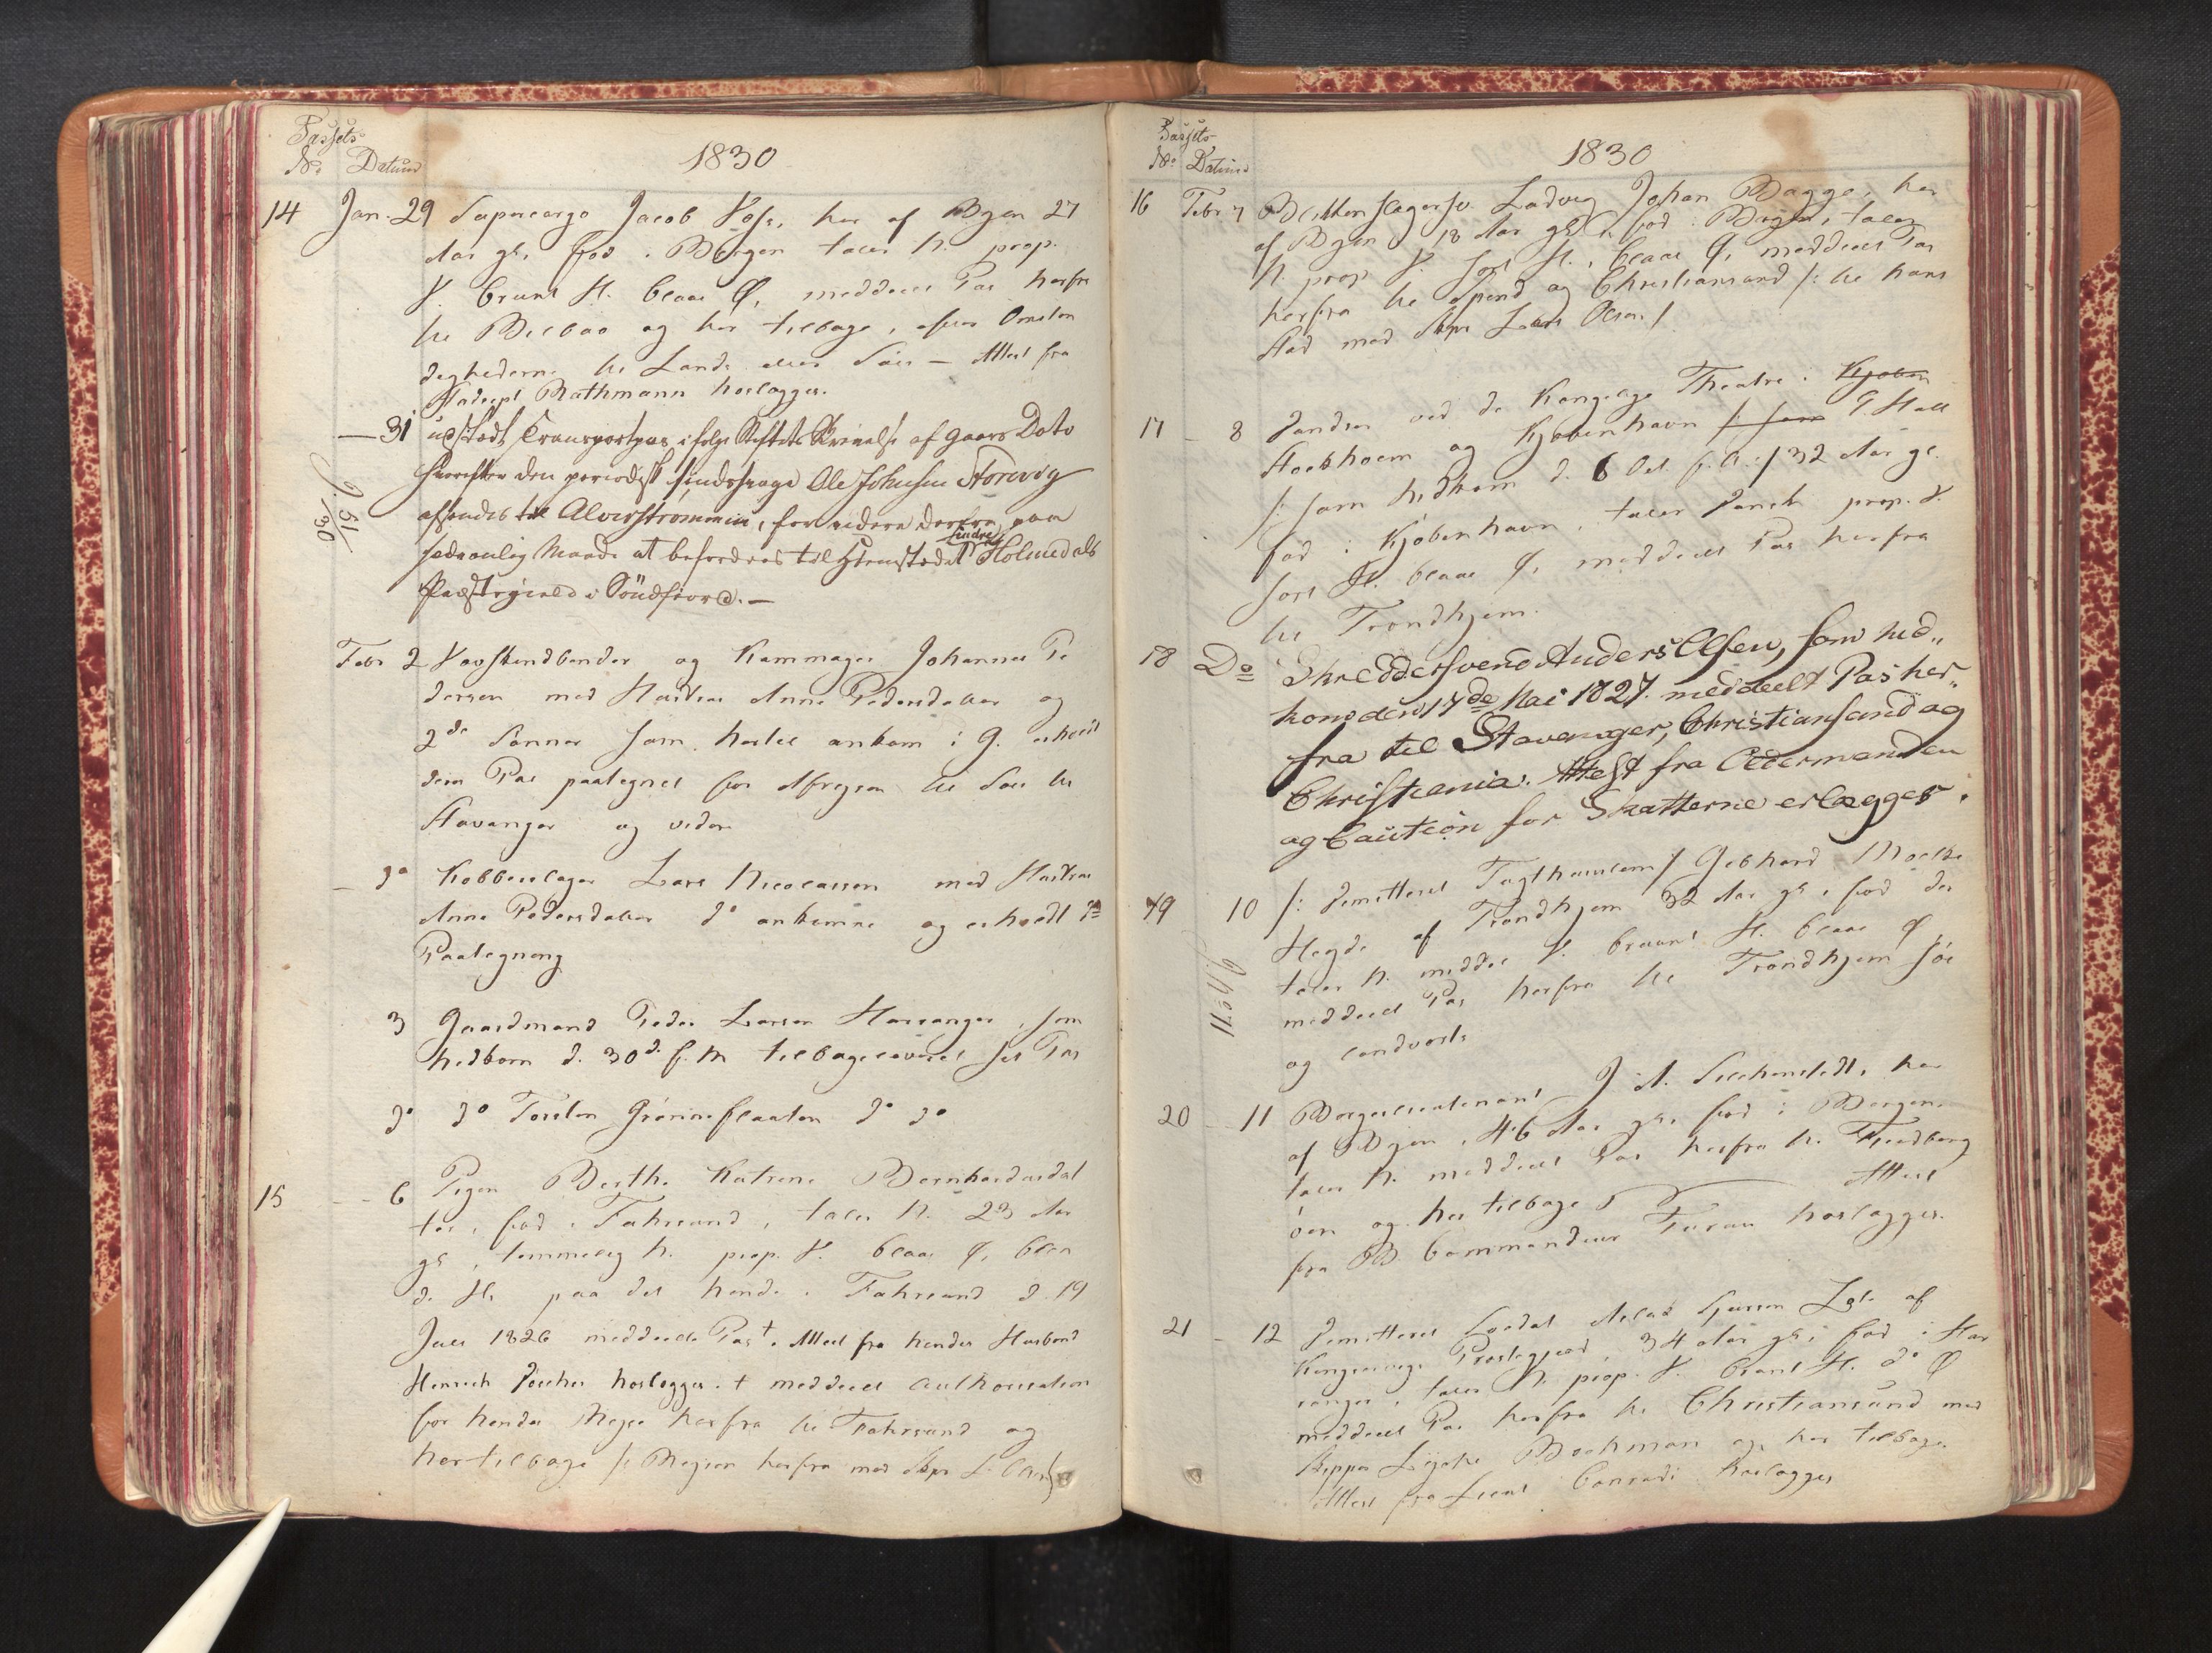 Passets
No Datum
1830
14 Jan. 29 Supercargo Jacob Voss, her af Byen 27
Aar gl, fød i Bergen taler N. prop.
V. bruunt H. blaae Ø, meddeelt Pas herfra
til Bilbao og her tilbage, efter Omstæn
dighederne til Lands eller Søes — Attest fra
Stadscpt Rathmann herlægges.
— 31 udstædt Transportpas ifølge Stiftets Skrivelse af Gaars Dato
hvorefter den periodisk sindssvage Ole Johnsen Storevig
afsendes til Alverstrømmen, for videre derfra paa
sædvanlig Maade at befordres til Hjemstedet Indre Holmedals
Præstegield i Söndfiord. —
J. 51/30
Febr 2 og Kammager Johannes Pe
dersen med Hustrue Anne Pedersdatter og
2de Sønner som hertil ankom i G. erholdt
dem Pas paategnet for Afreysen til Søes til
Stavanger og videre
— do Kobberslager Lars Nicolaisen med Hustrue
Anne Pedersdatter do ankomne og erholdt do
Paategning
3 Gaardmand Peder Larsen Hardanger, som
hidkom d. 30d. f. M tilbageleveret sit Pas
do do Torsten Grønneflaaten do do
15 — 6 Pigen Berthe Katrine Bernhardusdat
ter, fød i Fahrsund, taler N. 23 Aar
gl, temmelig h. prop. V. blaae Ø, blon
de H. paa det hende i Fahrsund d. 19
Juli 1826 meddeelte Pas +. Attest fra hendes Husbond
Henrich herlægges. + meddeelt Authorisation
for hendes Reyse herfra til Fahrsund og
hertilbage /: Reysen herfra med Skpr
Passets
No Datum
1830
16 Febr 7 Blikkenslagersv. Ludvig Johan Bagge, her
af Byen, 18 Aar gl, fød i Bergen, taler
N. prop V. sort H., blaae Ø, meddeelt Pas
herfra til og Christiansand /: til hans
Sted med Skpr Lars Olsen /
17 — 8 Dandser ved de Kongelige Theatre i Kjøben
Stockholm og Kjøbenhavn /: som
/: som hidkom d. 6 Oct. f. A. :/ 32 Aar gl.
fød i Kjøbenhavn, taler Dansk prop. V.
sort H. blaae Ø, meddeelt Pas herfra
til Trondhjem.
18 Do Skreddersvend Anders Olsen, som hid„
kom den 17de Mai 1827. meddeelt Pas her„
fra til Stavanger, Christiansand og
Christiania. Attest fra Oldermanden
og Caution for Skatterne erlægges.
19 10 /: Demitteret Tugthuuslem / Gebhard
af Trondhjem 32 Aar gl, fød der
taler N. middel V. bruunt H. blaae Ø
meddeelt Pas herfra til Trondhjem søe
og landverts
20 — 11 Borgerlieutenant J. A. her
af Byen, 46 Aar gl, fød i Bergen
taler N. meddeelt Pas herfra til
øen og her tilbage Attest
fra B. Commandeur herlægges.
21 — 12 Demitteret Soldat Aslak af
Kingservigs Præstegjeld, 34 Aar gl, fød i Har
danger, taler N. prop. V. bruunt H. do Ø
meddeelt Pas herfra til Christiansund med
Skipper Bochman og her tilbage.
Attest fra Lieut Conradi herlægges